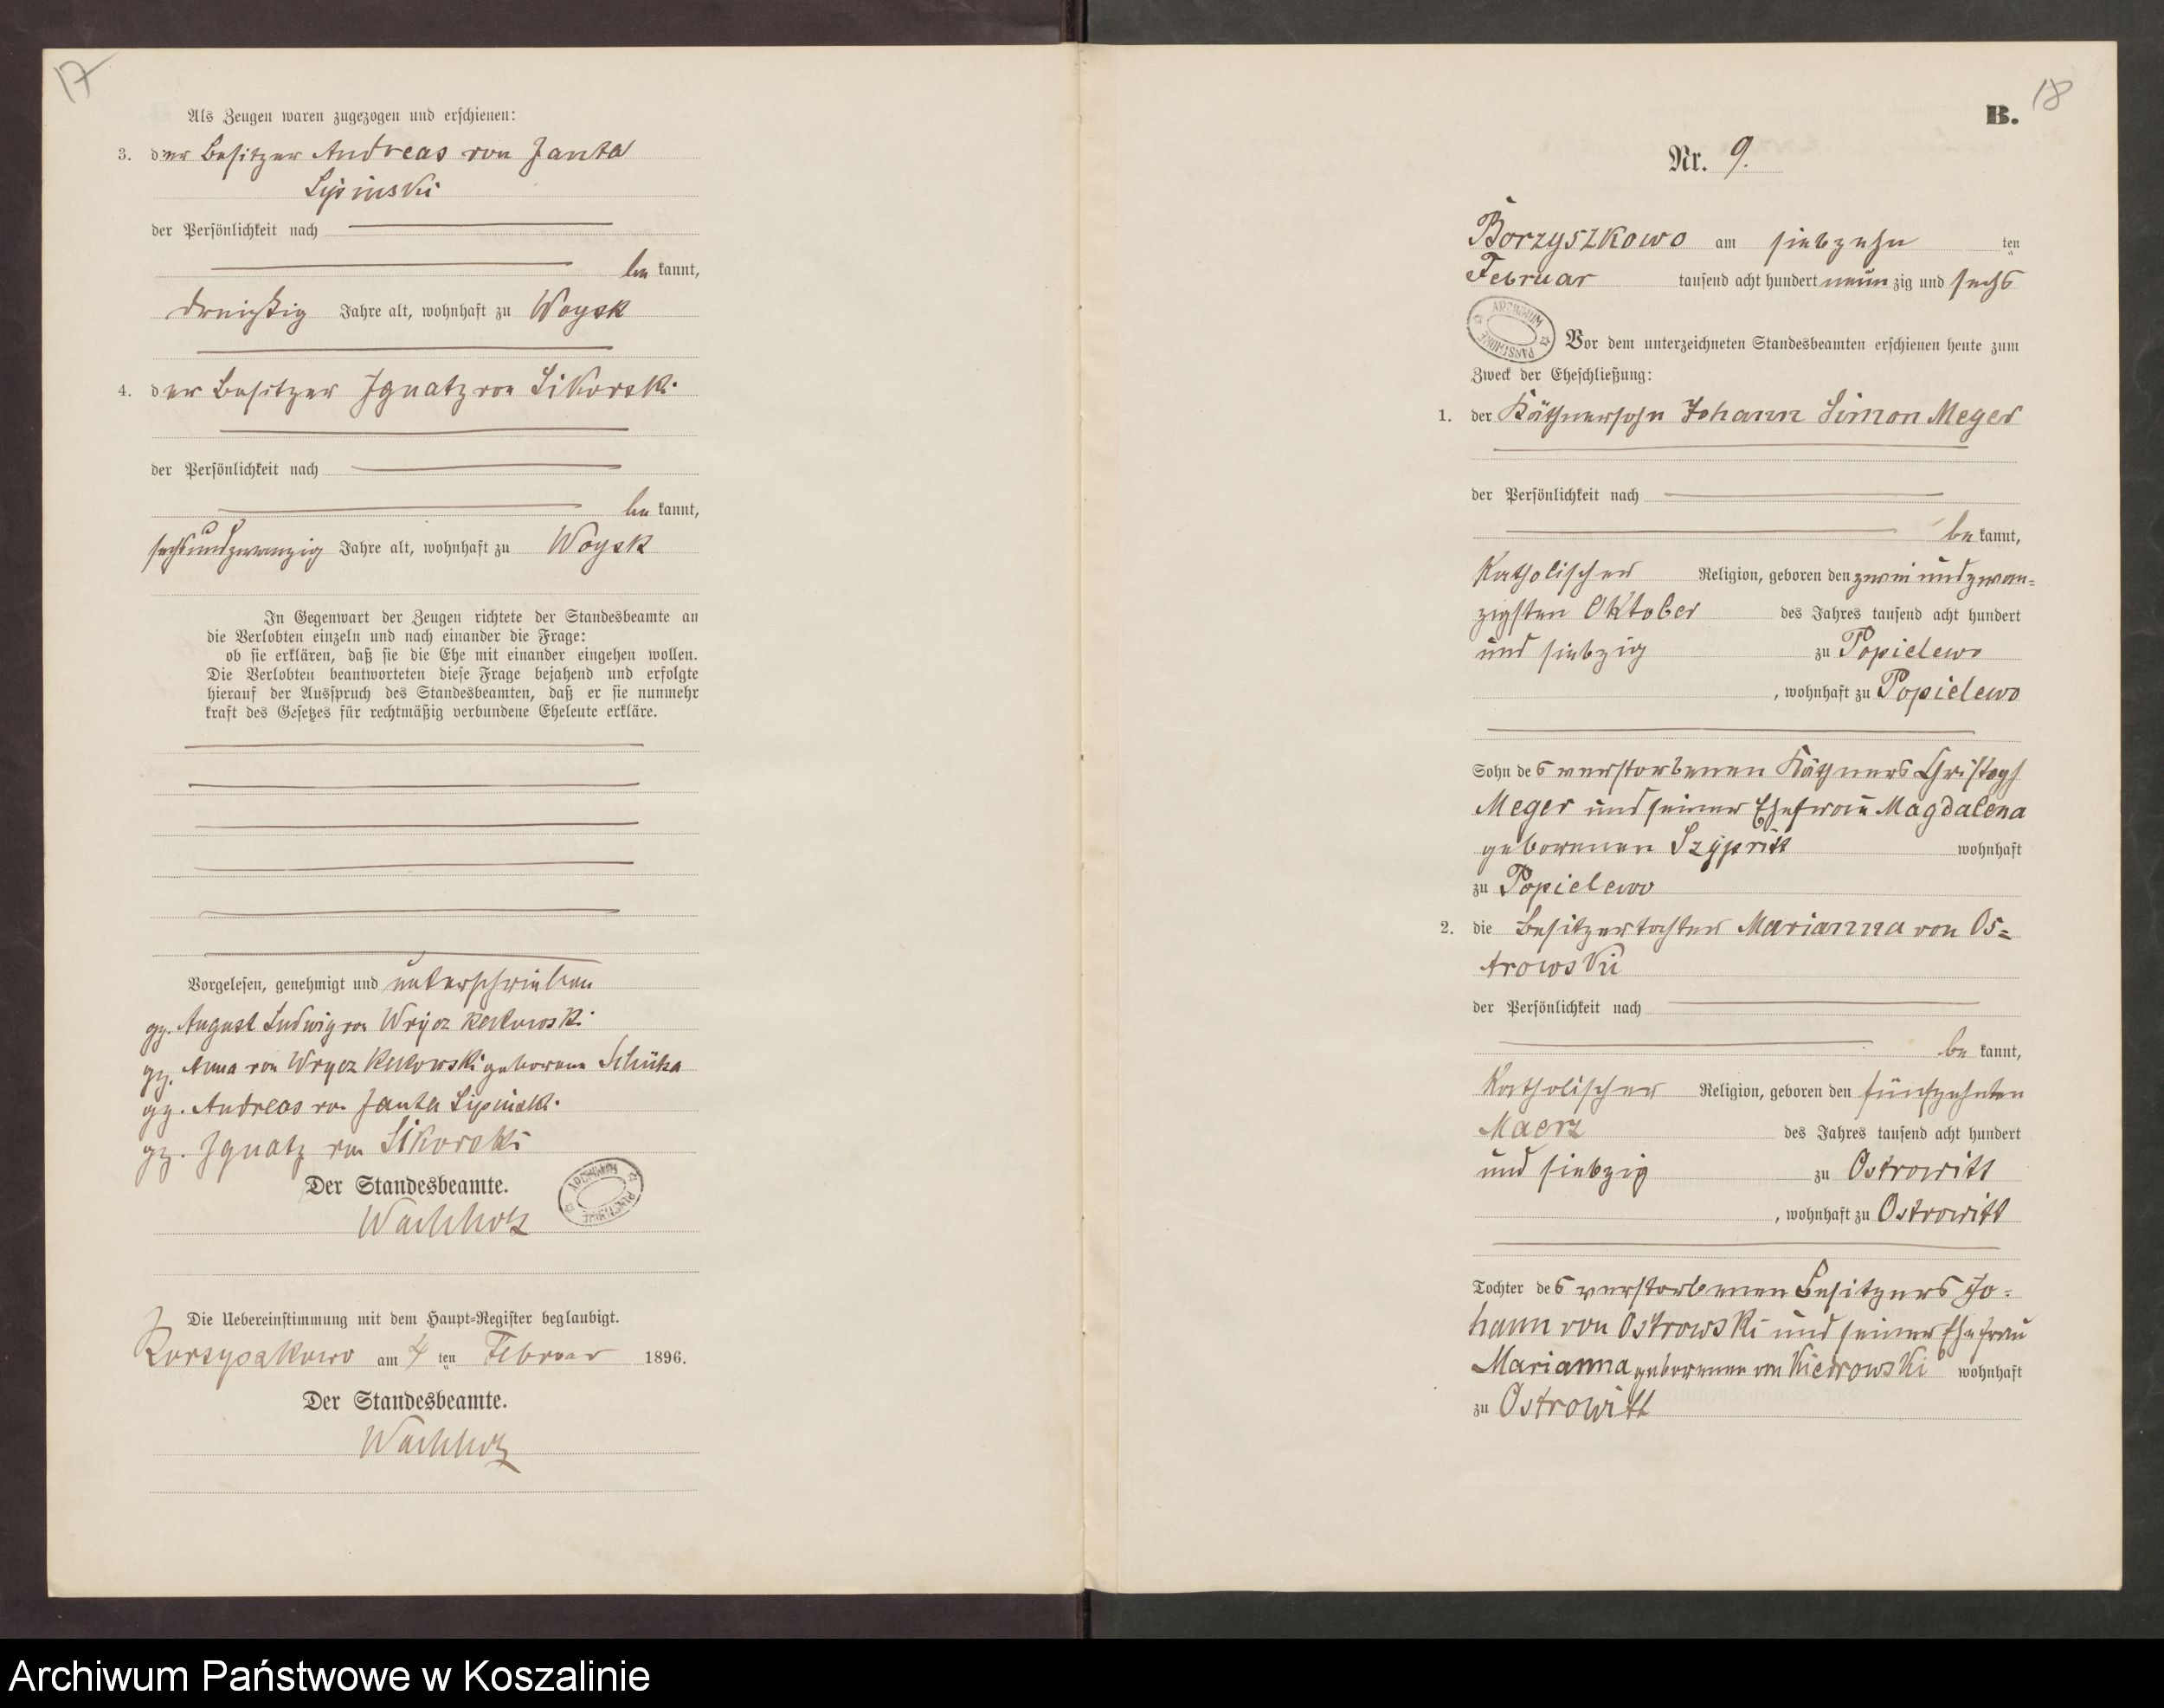 17
Als Zeugen waren zugezogen und erschienen:
3. der Besitzer Andreas von Janta
Lipinski
der Persönlichkeit nach
be kannt,
dreißig Jahre alt, wohnhaft zu Woysk
4. der Besitzer Ignatz von Sikorski
der Persönlichkeit nach
be kannt,
sechsundzwanzig Jahre alt, wohnhaft zu Woysk
In Gegenwart der Zeugen richtete der Standesbeamte an
die Verlobten einzeln und nach einander die Frage:
ob sie erklären, daß sie die Ehe mit einander eingehen wollen.
Die Verlobten beantworteten diese Frage bejahend und erfolgte
hierauf der Ausspruch des Standesbeamten, daß er sie nunmehr
kraft des Gesetzes für rechtmäßig verbundene Eheleute erkläre.
Vorgelesen, genehmigt und unterschrieben
gz. August Ludwig von Wrycz Rekowski
gz. Anna von Wrycz Rekowski geborene
gz. Andreas von Janta Lipinski
gz. Ignatz von Sikorski
Der Standesbeamte.
Wachholz
ARCHIWUM PAŃSTWOWE
Die Uebereinstimmung mit dem Haupt-Register beglaubigt.
Borzyszkowo am 4 ten Februar 1896.
Der Standesbeamte.
Wachholz
18
B.
Nr. 9.
Borzyszkowo am siebzehn ten
Februar tausend acht hundert neun zig und sechs
ARCHIWUM PAŃSTWOWE
Vor dem unterzeichneten Standesbeamten erschienen heute zum
Zweck der Eheschließung:
1. der Käthnersohn Johann Simon Meger
der Persönlichkeit nach
be kannt,
Katholischer Religion, geboren den zwei und zwan=
zigsten Oktober des Jahres tausend acht hundert
und siebzig zu Popielewo
, wohnhaft zu Popielewo
Sohn des verstorbenen Käthners Christoph
Meger und seiner Ehefrau Magdalena
geborenen wohnhaft
zu Popielewo
2. die Besitzertochter Marianna von Os=
trowski
der Persönlichkeit nach
be kannt,
Katholischer Religion, geboren den fünfzehnten
Maerz des Jahres tausend acht hundert
und siebzig zu Ostrowitt
, wohnhaft zu Ostrowitt
Tochter des verstorbenen Besitzers Jo=
hann von Ostrowski und seiner Ehefrau
Marianna geborenen von Kiedrowski wohnhaft
zu Ostrowitt
Archiwum Państwowe w Koszalinie